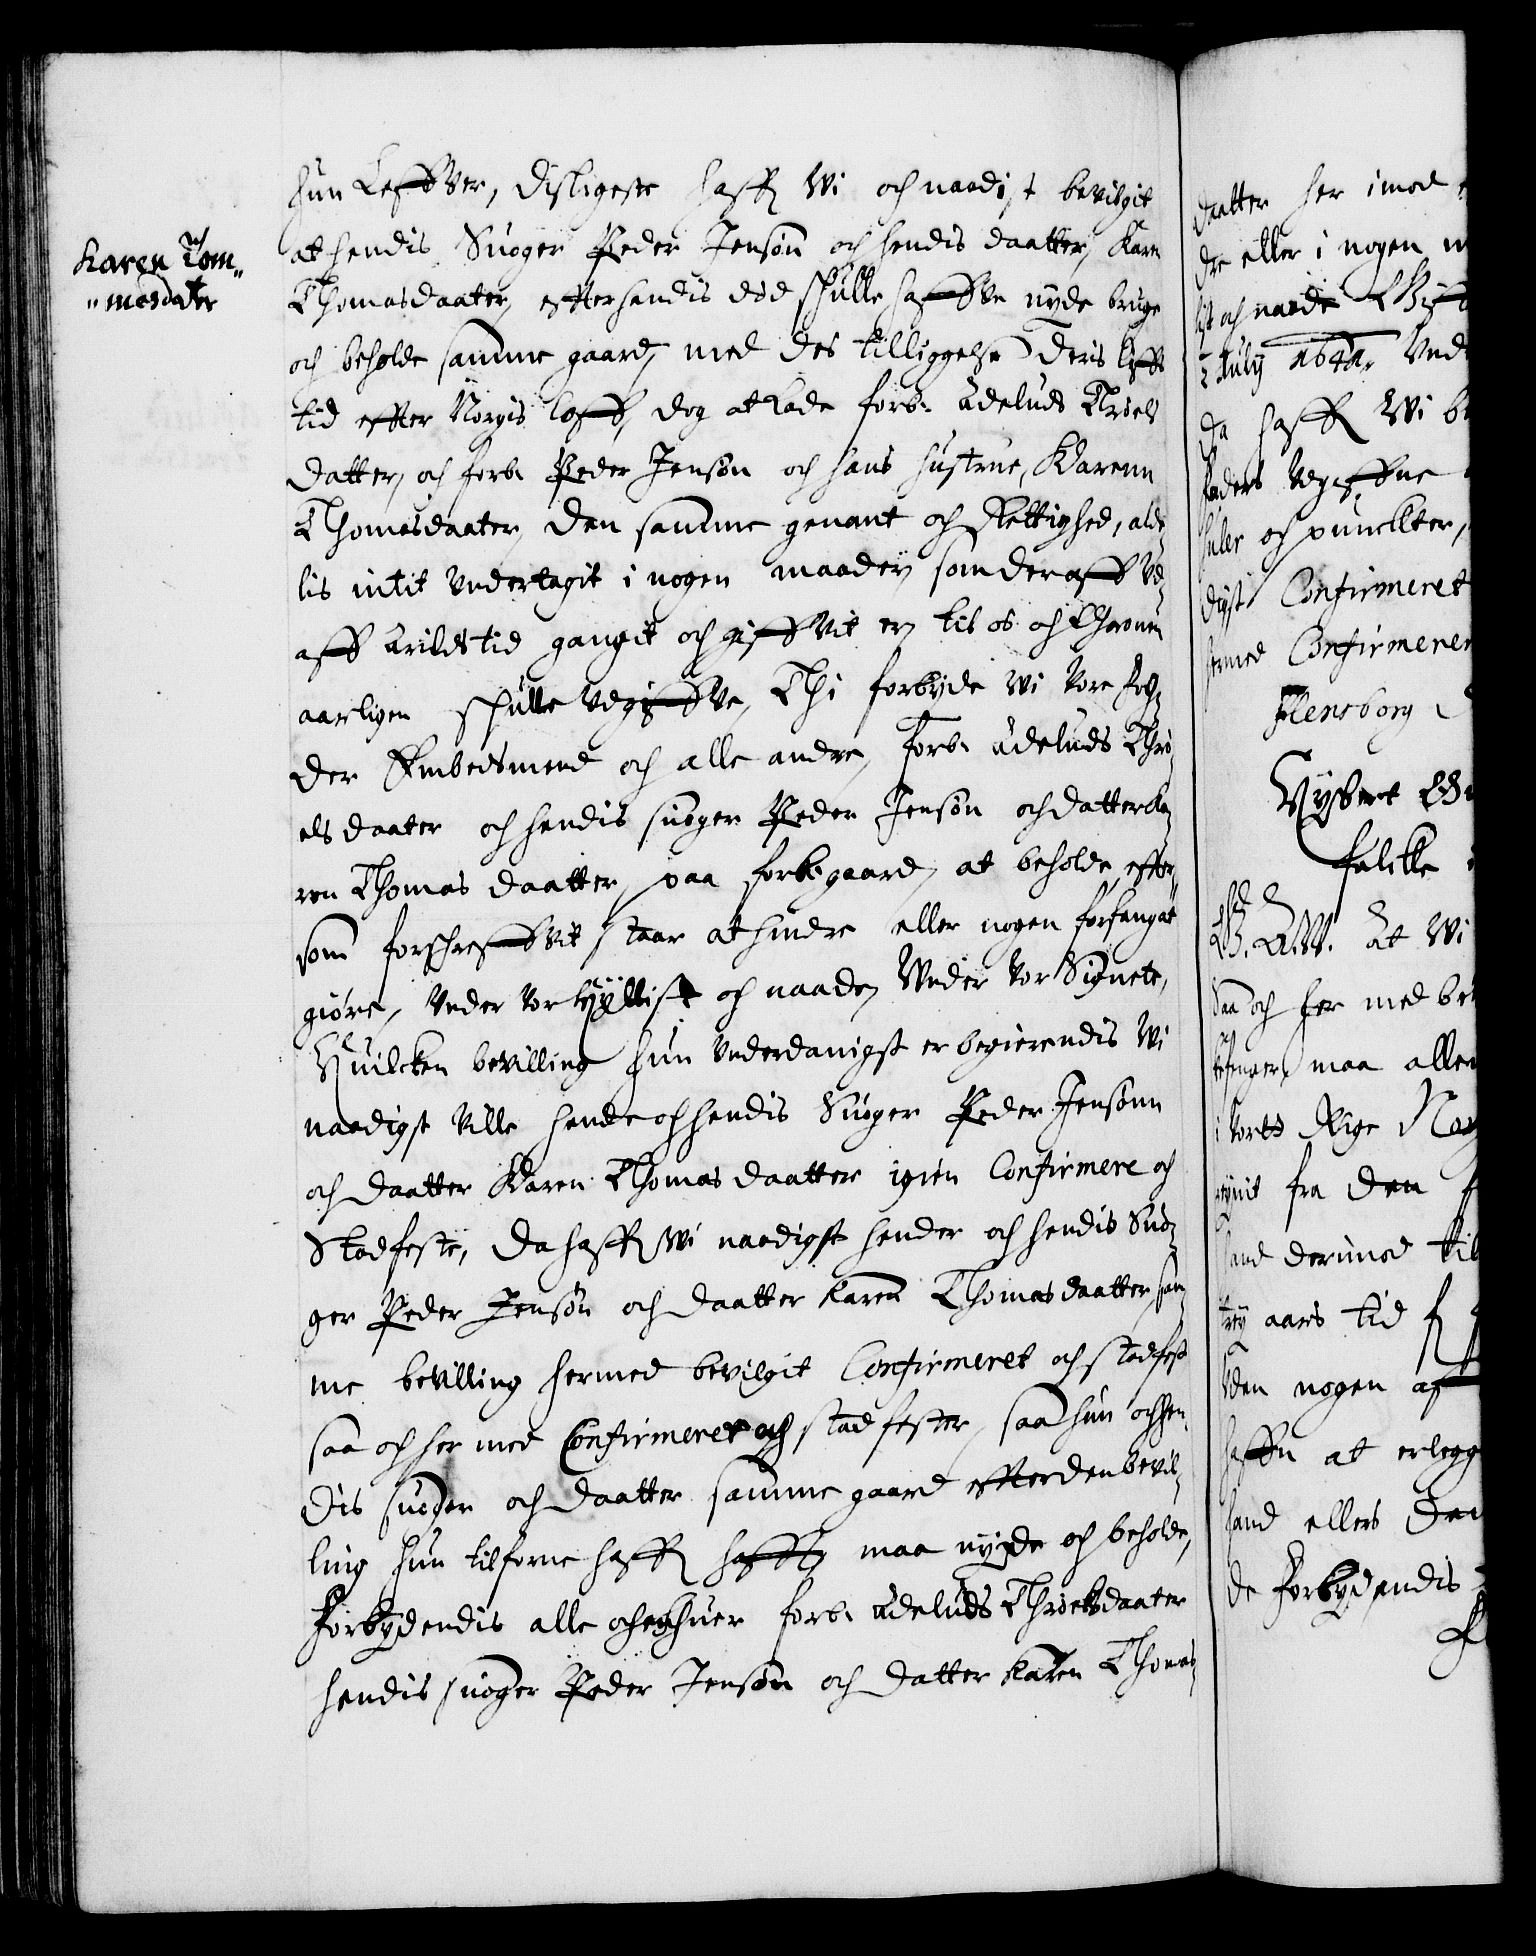 Karen Tom„
„mesdater
hun Leffver, disligeste haffr Wi och naadist bevilgit
at hendis Suoger Peder Jensøn och hendis daatter, Karen
Thomasdaater, effterhendis død schulle haffve nyde bruge
och beholde samme gaard, med des tilliggelse deris liffs
tid effter Norgis loff, dog at Lade forb: Adeluds Throels
datter, och forb: Peder Jensøn och hans hustrue, Karenn
Thomasdaater, den samme genant och Rettighed, alde,
lis intit Undertagit i nogen maader som deraff Ud,
aff Arilds tid gangit och giffvit er, til os och Chronen
aarligen schulle udgiffve, Thi forbyde Wi vore fog,
der Embedsmend och alle andre, forb: Adeluds Thro,
els daater och hendis suoger Peder Jensøn och datter Ka,
ren Thomas daatter, paa forb: gaard, at beholde, effter,
som forschreffvit staar at hindre eller nogen forfang at
giøre, Under vor hyllist och naade, Under vor Signete,
Huilcken bevilling hun Underdanigst er begierendis Wi
naadigst Ville hende och hendis Suoger Peder Jensønn
och daatter Karen Thomas daatter igien Confirmere och
Stadfeste, da haffr Wi naadigst hender och hendis Suo,
ger Peder Jensøn och daatter Karen Thomas daatter, sam,
me bevilling hermed bevilgit Confirmeret och stadfest
saa och her med Confirmeret och stadfester, saa hun och hen,
dis suoger och daatter samme gaard effter den bevil,
ling hun tilforne haffr haffr maa nyde och beholde,
Forbydendis alle och enhuer forb: Adeluds Throelsdaater
hendis suoger Peder Jensøn och datter Karen Thomas,
daatter her imod
dre eller i nogen m
list och naade
2 July 1641. Und
da haffr Wi be
faders Udgiffne
suler och punckter,
digst Confirmeret
hermed Confirmerer
Flensborg
Wybert
falcke
G. A. W. At Wi
Saa och her med be
maa allen
i vortt Rige Nor
fra den
land derimod til
trey aars tid
Uden nogen aff
haffn at erlegg
hand ellers den
de Forbydendis